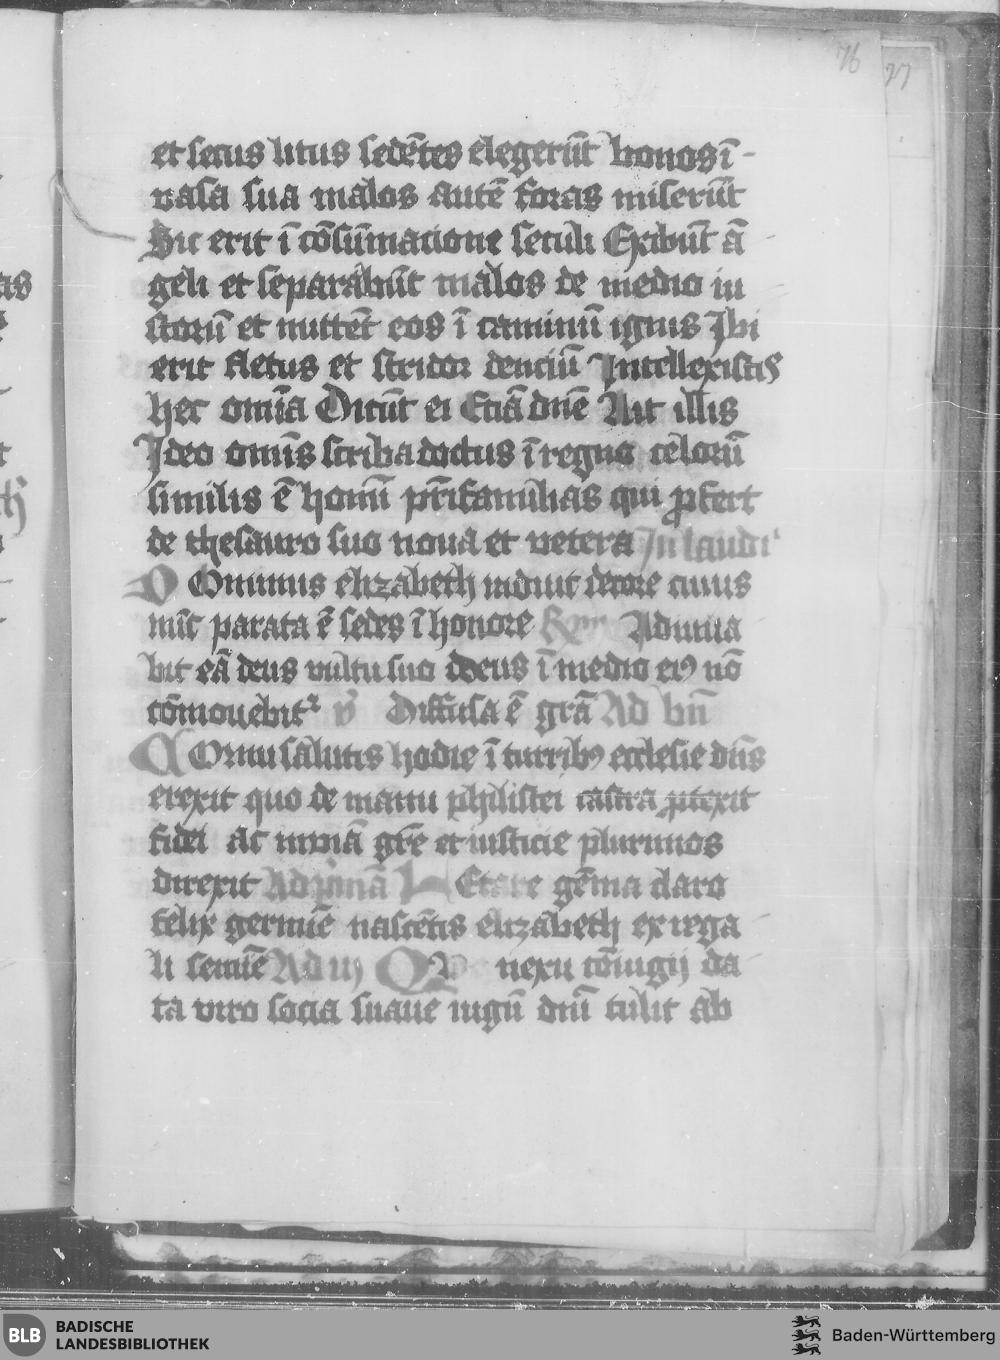 76 77
et secus litus sedētes elegerūt bonos ī
vasa sua malos autē foras miserūt
Sic erit ī cōsūmatione seculi Exibūt ā
geli et separabūt malos de medio iu
storū et mittēt eos ī caminū ignis Ibi
erit fletus et stridor denciū Intellexistis
hec omīa Dicūt ei Eciā dnē Ait illis
Ideo omīs scriba doctus ī regno celorū
similis ē homī pr̄ifamilias qui ꝓfert
de thesauro suo noua et vetera In laudi
Dominus elizabeth induit decore cuius
nūc parata ē sedes ī honore Adiuua
bit eā deus vultu suo deus ī medio eiꝰ nō
cōmouebitr v Diffusa ē grā Ad bn̄
Cornu salutis hodie ī turribꝰ ecclesie dn̄s
erexit quo de manu philistei castra ꝓtexit
fidei ac mn̄iā gr̄e et iusticie plurimos
direxit Ad pͥmā Letare gēma claro
felix germīe nascētis elizabeth ex rega
li semīe Ad iij Que nexu cōiugij da
ta viro socia suaue iugū dn̄i tulit ab
BLB BADISCHE
LANDESBIBLIOTHEK
Baden-Württemberg